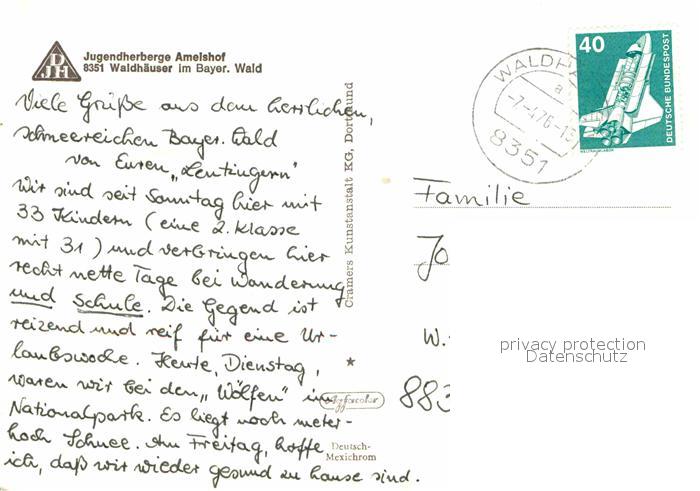 DJH
Jugendherberge Amelshof
8351 Waldhäuser im Bayer. Wald
Viele Grüße aus dem herrlichen,
schneereichen Bayer. Wald
von Euren „Lentzingern"
Wir sind seit Sonntag hier mit
33 Kindern (eine 2. Klasse
mit 31) und verbringen hier
recht nette Tage bei Wanderung
und Schule. Die Gegend ist
reizend und reif für eine Ur-
laubswoche. Heute, Dienstag,
waren wir bei den „Wölfen" im
Nationalpark. Es liegt noch meter-
hoch Schnee. Am Freitag, hoffe
ich, daß wir wieder gesund zu hause sind.
Cramers Kunstanstalt KG, Dortmund
Agfacolor
Deutsch-
Mexichrom
WALDHÄ
a
-7.-4.76-15
8351
40
DEUTSCHE BUNDESPOST
WELTRAUMLABOR
Familie
Jo
W.
883
privacy protection
Datenschutz